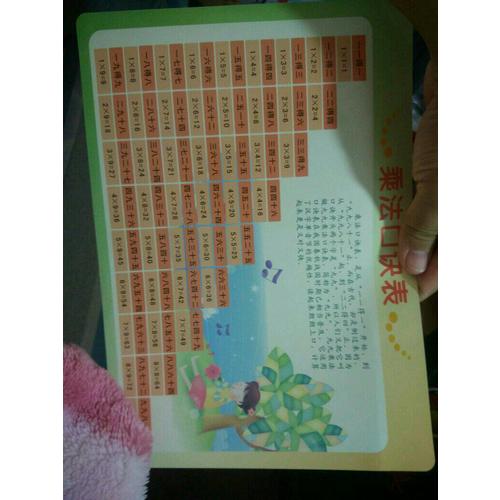 乘法口诀表
乘法口诀表，是从“一一得一”开始，到
“九九八十一”止，而在古代，却是倒过来的，
从“九九八十一”起，到“二二得四”止，因为
口诀开头两个字是“九九”，所以人们又把它叫
起来是又对又快。
一一得一
1×1=1
一二得二 二二得四
1×2=2 2×2=4
一三得三 二三得六 三三得九
1×3=3 2×3=6 3×3=9
一四得四 二四得八 三四十二 四四十六
1×4=4 2×4=8 3×4=12 4×4=16
一五得五 二五一十 三五十五 四五二十 五五二十五
1×5=5 2×5=10 3×5=15 4×5=20 5×5=25
一六得六 二六十二 三六十八 四六二十四 五六三十 六六三十六
1×6=6 2×6=12 3×6=18 4×6=24 5×6=30 6×6=36
一七得七 二七十四 三七二十一 四七二十八 五七三十五 六七四十二 七七四十九
1×7=7 2×7=14 3×7=21 4×7=28 5×7=35 6×7=42 7×7=49
一八得八 二八十六 三八二十四 四八三十二 五八四十 六八四十八 七八五十六 八八六十四
1×8=8 2×8=16 3×8=24 4×8=32 5×8=40 6×8=48 7×8=56 8×8=64
一九得九 二九十八 三九二十七 四九三十六 五九四十五 六九五十四 七九六十三 八九七十二 九九八
1×9=9 2×9=18 3×9=27 4×9=36 5×9=45 6×9=54 7×9=63 8×9=72